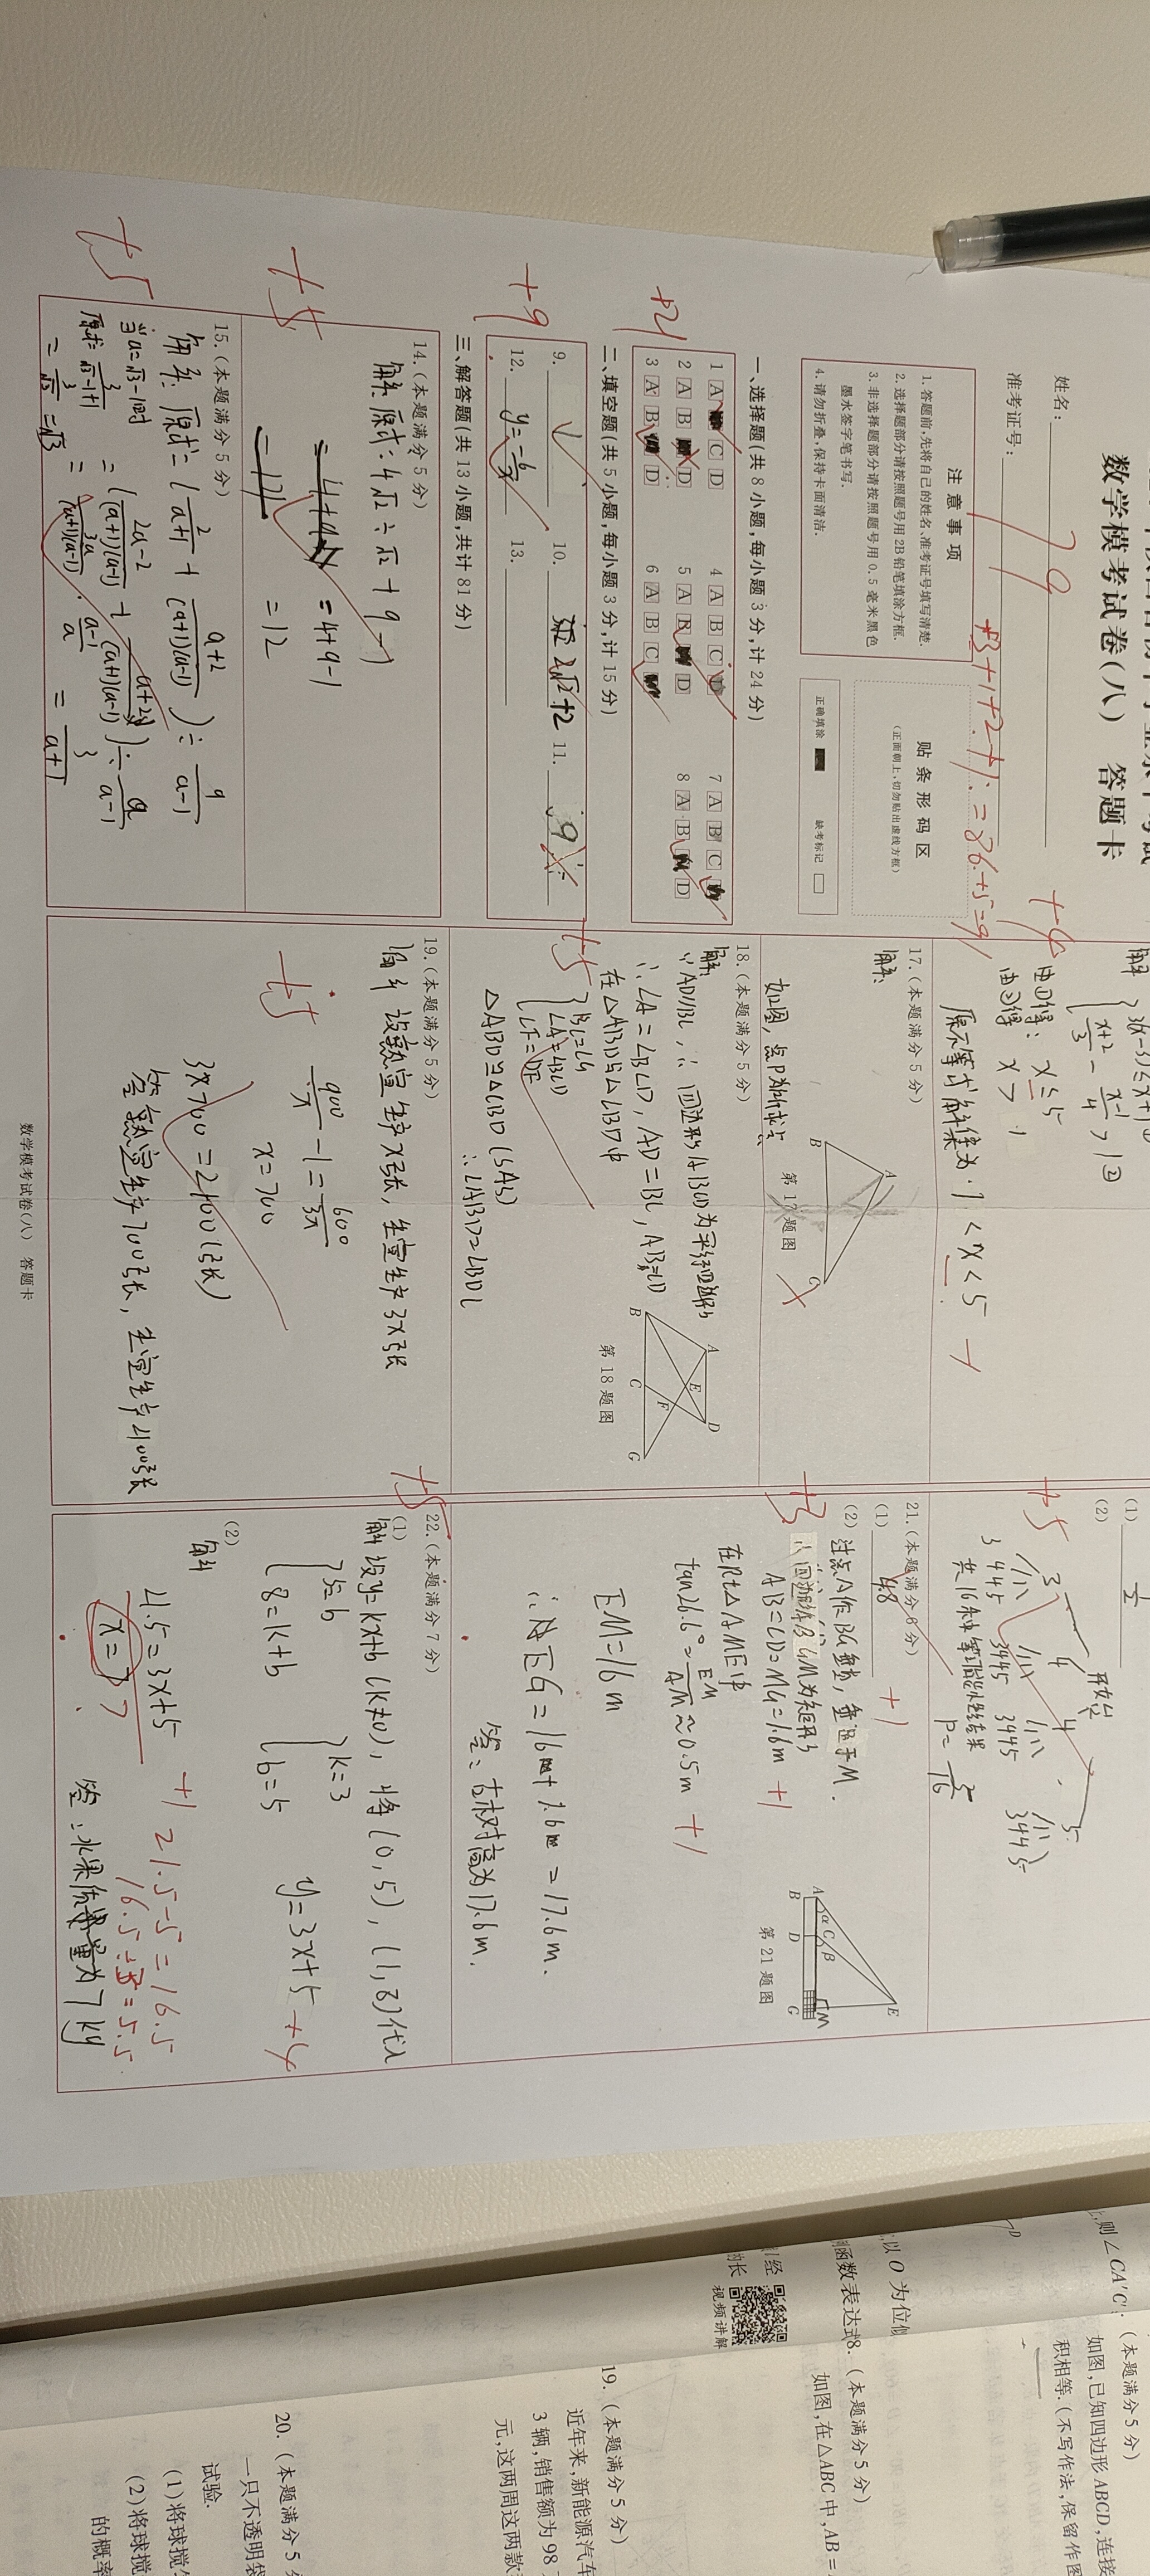 数学模考试卷(八) 答题卡
姓名:
准考证号:
79
+3+1+2+1=86+5=91
注意事项
1. 答题前,先将自己的姓名、准考证号填写清楚.
2. 选择题部分请按照题号用2B铅笔填涂方框.
3. 非选择题部分请按照题号用0.5毫米黑色
墨水签字笔书写.
4. 请勿折叠,保持卡面清洁.
贴条形码区
(正面朝上,切勿贴出虚线方框)
正确填涂
缺考标记
一、选择题(共8小题,每小题3分,计24分)
+21
1 A C D
2 A B D
3 A B D
4 A B C
5 A B D
6 A B C
7 A B C
8 A B D
二、填空题(共5小题,每小题3分,计15分)
+9
9.
10. 2√2+2
11. 9
12. y=-6/x
13.
三、解答题(共13小题,共计81分)
14.(本题满分5分)
解:原式=4√2÷√2+9-1
=4+9-1
=12
+5
15.(本题满分5分)
解:原式=(2/(a+1)+(a+2)/((a+1)(a-1)))÷a/(a-1)
=((2a-2)/((a+1)(a-1))+(a+2)/((a+1)(a-1)))÷a/(a-1)
=3a/((a+1)(a-1))·(a-1)/a=3/(a+1)
当a=√3-1时
原式=3/(√3-1+1)
=3/√3=√3
+5
解
3(x-3)≤x+1①
(x+2)/3-(x-1)/4>1②
由①得:x≤5
由②得x>1
原不等式解集为1<x<5
+4
17.(本题满分5分)
解:
如图,点P为所求点
A
B
C
第17题图
18.(本题满分5分)
解:
∵AD//BC,∴四边形ABCD为平行四边形
∴∠A=∠BCD,AD=BC,AB=CD
在△ABD与△CBD中
△ABD≌△CBD(SAS)
∴∠ABD=∠BDC
+5
A
D
E
F
B
C
G
第18题图
19.(本题满分5分)
900/x-1=600/3x
x=700
3×700=2100(张)
+5
(1) 1/2
(2)
开始
3 4 4 5
3445 3445 3445 3445
P=2/16
+5
21.(本题满分6分)
(1) 48
+1
(2)过点A作BG垂线,垂足于M.
∴四边形ABGM为矩形
AB=CD=MG=1.6m +1
在Rt△AME中
tan26.6°=EM/AM≈0.5m +1
EM=16m
∴EG=16m+1.6m=17.6m.
答:古树高为17.6m.
+3
E
A
α
C
β
M
B
D
G
第21题图
22.(本题满分7分)
(1)
解设y=kx+b(k≠0),将(0,5),(1,8)代入
5=b
8=k+b
k=3
b=5
y=3x+5 +4
+5
(2)
解
x=7
+1
21.5-5=16.5
16.5÷3=5.5
答:水果质量为7kg
数学模考试卷(八) 答题卡
则∠CA′C′
以O为位似
函数表达式
视频讲解
(本题满分5分)
如图,已知四边形ABCD,连接
积相等.(不写作法,保留作图
8.(本题满分5分)
如图,在△ABC中,AB=
19.(本题满分5分)
近年来,新能源汽车
3辆,销售额为98
元,这两周这两款
20.(本题满分5分
一只不透明袋
试验.
(1)将球搅
(2)将球搅
的概率